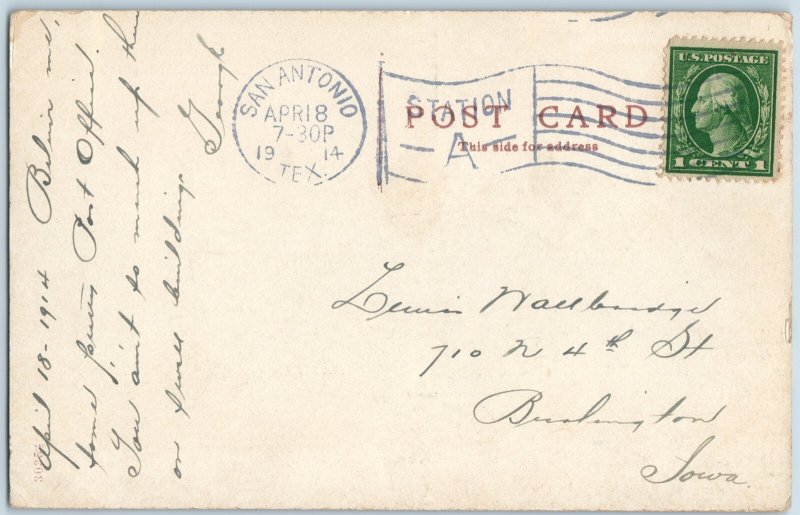 April 18-1914 Believe me,
some penny Post Office.
You ain't to mark up the
on fine buildings
George
SAN ANTONIO
APR 18
7-30P
1914
TEX.
STATION
A
POST CARD
This side for address
U.S. POSTAGE
1 CENT 1
Lewis Wallbridge
710 N 4th St
Burlington
Iowa.